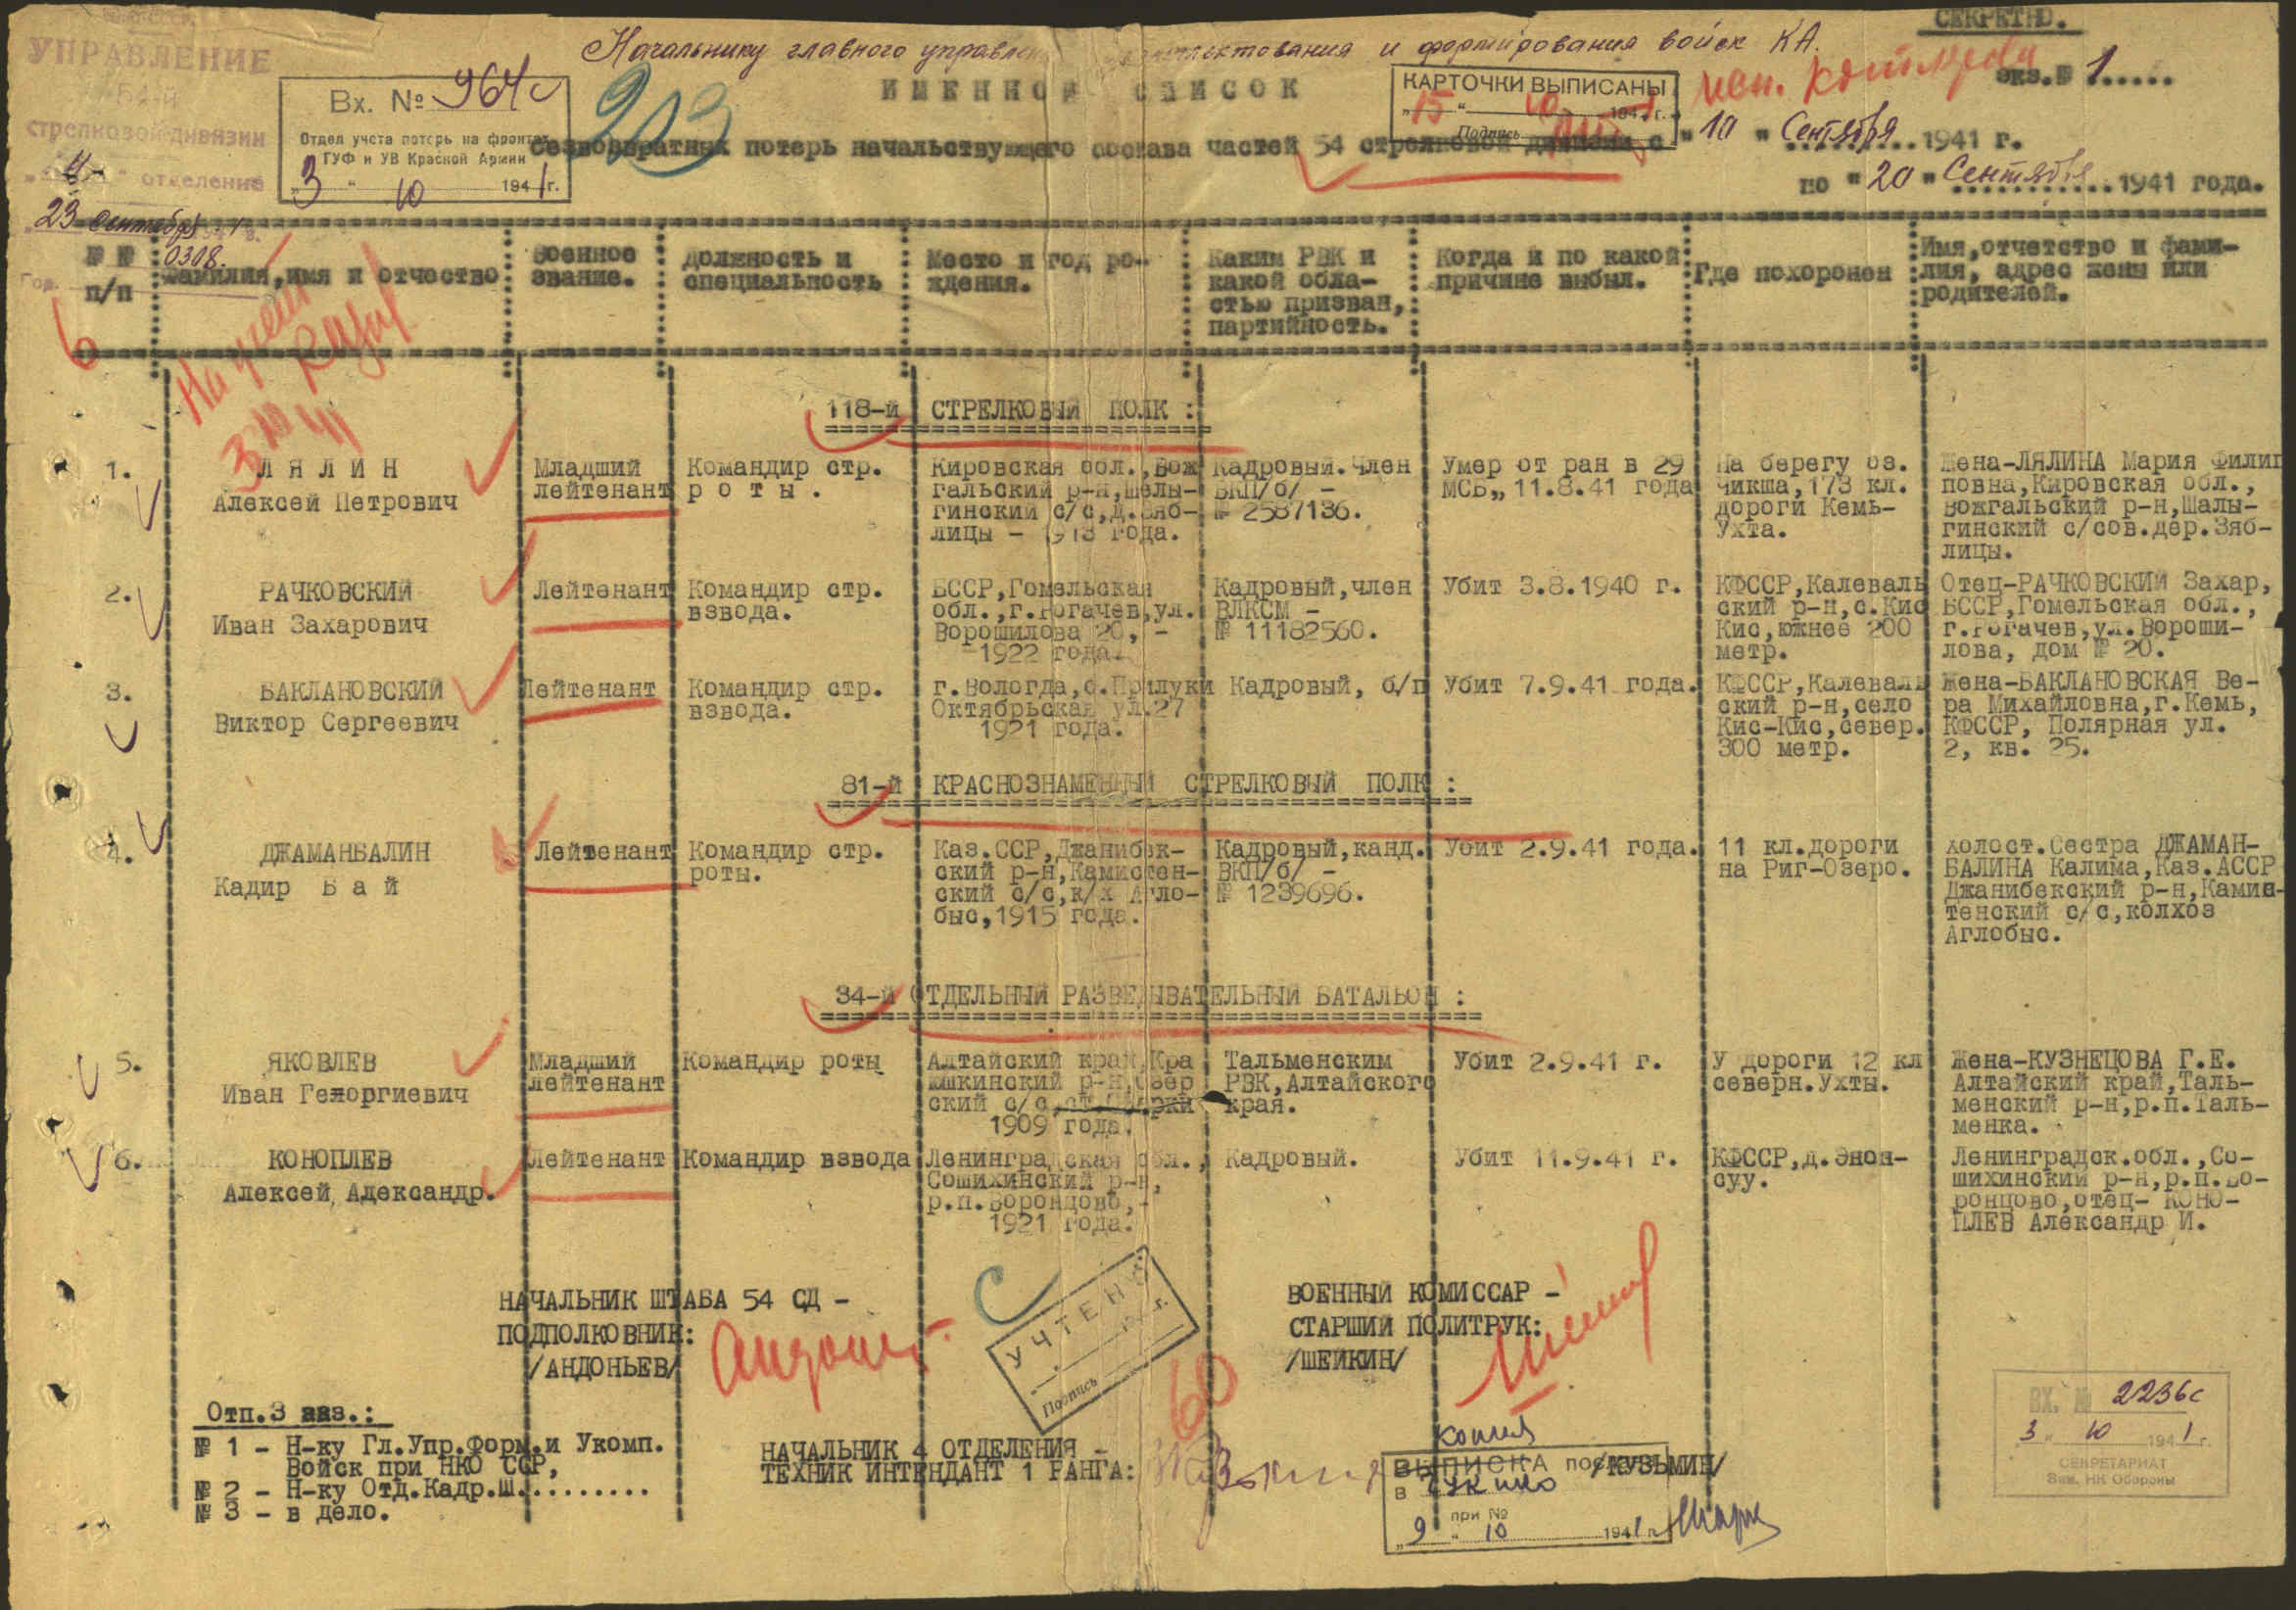 СЕКРЕТНО.
УПРАВЛЕНИЕ
54-й
стрелковой дивизии
"4" отделение
23 сентября
0308.
Вх. № 964с
Отдел учета потерь на фронтах
ГУФ и УВ Красной Армии
"3" 10 1941г.
Начальнику главного управления комплектования и формирования войск КА.
213
ИМЕННОЙ СПИСОК
КАРТОЧКИ ВЫПИСАНЫ
"15" 10 1941г.
Подпись
экз.№ 1.....
безвозвратных потерь начальствующего состава частей 54 стрелковой дивизии с "10" Сентября 1941 г.
по "20" Сентября 1941 года.
№ №
п/п
Фамилия,имя и отчество
Военное
звание.
Должность и
специальность
Место и год ро-
ждения.
Каким РВК и
какой обла-
стью призван,
партийность.
Когда и по какой
причине выбыл.
Где похоронен
Имя,отчетство и фами-
лия, адрес жены или
родителей.
На учет
3 10 41
118-й СТРЕЛКОВЫЙ ПОЛК :
1.
ЛЯЛИН
Алексей Петрович
Младший
лейтенант
Командир стр.
роты.
Кировская обл.,Вож
гальский р-н,Шелы-
гинский с/с,д.Зяб-
лицы - 1913 года.
Кадровый.Член
ВКП/б/ -
№ 2587136.
Умер от ран в 29
МСБ,, 11.8.41 года
На берегу оз.
Чикша,173 кл.
дороги Кемь-
Ухта.
Жена-ЛЯЛИНА Мария Филип
повна,Кировская обл.,
Вожгальский р-н,Шалы-
гинский с/сов.дер.Зяб-
лицы.
2.
РАЧКОВСКИЙ
Иван Захарович
Лейтенант
Командир стр.
взвода.
БССР,Гомельская
обл.,г.Рогачев,ул.
Ворошилова 20, -
1922 года.
Кадровый,член
ВЛКСМ -
№ 11182560.
Убит 3.8.1940 г.
КФССР,Калеваль
ский р-н,с.Кис
Кис,южнее 200
метр.
Отец-РАЧКОВСКИЙ Захар,
БССР,Гомельская обл.,
г.Рогачев,ул.Вороши-
лова, дом № 20.
3.
БАКЛАНОВСКИЙ
Виктор Сергеевич
Лейтенант
Командир стр.
взвода.
г.Вологда,с.Прилуки
Октябрьская ул.27
1921 года.
Кадровый, б/п
Убит 7.9.41 года.
КФССР,Калеваль
ский р-н,село
Кис-Кис,север.
300 метр.
Жена-БАКЛАНОВСКАЯ Ве-
ра Михайловна,г.Кемь,
КФССР, Полярная ул.
2, кв. 25.
81-й КРАСНОЗНАМЕННЫЙ СТРЕЛКОВЫЙ ПОЛК :
4.
ДЖАМАНБАЛИН
Кадир Бай
Лейтенант
Командир стр.
роты.
Каз.ССР,Джанибек-
ский р-н,Камистен-
ский с/с,к/х Агло-
быс,1915 года.
Кадровый,канд.
ВКП/б/ -
№ 1239696.
Убит 2.9.41 года.
11 кл.дороги
на Риг-Озеро.
Холост.Сестра ДЖАМАН-
БАЛИНА Калима,Каз.АССР
Джанибекский р-н,Камис-
тенский с/с,колхоз
Аглобыс.
34-й ОТДЕЛЬНЫЙ РАЗВЕДЫВАТЕЛЬНЫЙ БАТАЛЬОН :
5.
ЯКОВЛЕВ
Иван Георгиевич
Младший
лейтенант
Командир роты
Алтайский край,Кра
юшкинский р-н,Озер
ский с/с
1909 года.
Тальменским
РВК,Алтайского
края.
Убит 2.9.41 г.
У дороги 12 кл
северн.Ухты.
Жена-КУЗНЕЦОВА Г.Е.
Алтайский край,Таль-
менский р-н,р.п.Таль-
менка.
6.
КОНОПЛЕВ
Алексей Александр.
Лейтенант
Командир взвода
Ленинградская обл.,
Сошихинский р-н,
р.п.Воронцово,-
1921 года.
Кадровый.
Убит 11.9.41 г.
КФССР,д.Энон-
суу.
Ленинградск.обл.,Со-
шихинский р-н,р.п.Во-
ронцово,отец- КОНО-
ПЛЕВ Александр И.
НАЧАЛЬНИК ШТАБА 54 СД -
ПОДПОЛКОВНИК:
/АНДОНЬЕВ/
УЧТЕНО
Подпись
ВОЕННЫЙ КОМИССАР -
СТАРШИЙ ПОЛИТРУК:
/ШЕЙКИН/
60
Отп.3 экз.:
№ 1 - Н-ку Гл.Упр.Форм.и Укомп.
Войск при НКО ССР,
№ 2 - Н-ку Отд.Кадр.Ш.........
№ 3 - в дело.
НАЧАЛЬНИК 4 ОТДЕЛЕНИЯ -
ТЕХНИК ИНТЕНДАНТ 1 РАНГА:
/КУЗЬМИН/
копия
ВЫПИСКА
в ГУК НКО
при №
"9" 10 1941 г.
ВХ. № 2236с
3" 10 1941 г.
СЕКРЕТАРИАТ
Зам. НК Обороны